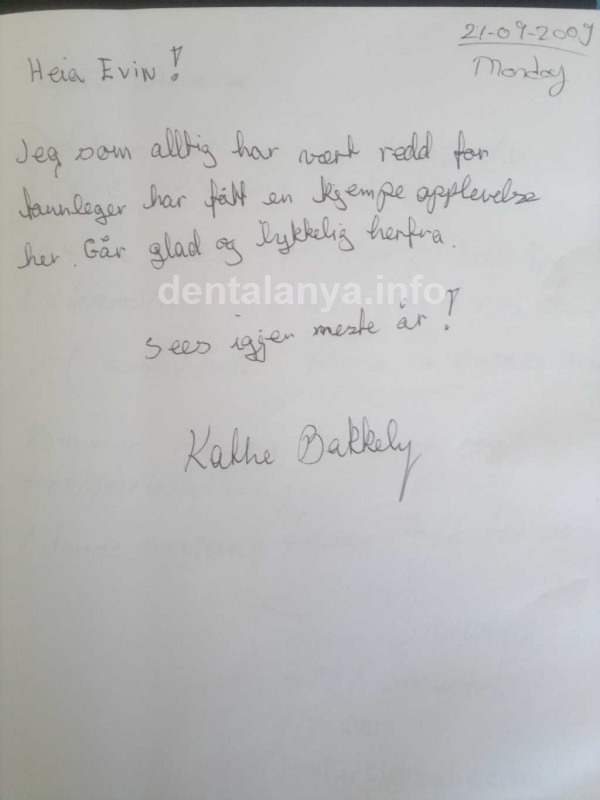 21-09-2009
Monday
Heia Evin!
Jeg som alltig har vært redd for
tannleger har fått en kjempe opplevelse
her. Går glad og lykkelig herfra.
dentalanya.info
Sees igjen neste år!
Kathe Bakkely